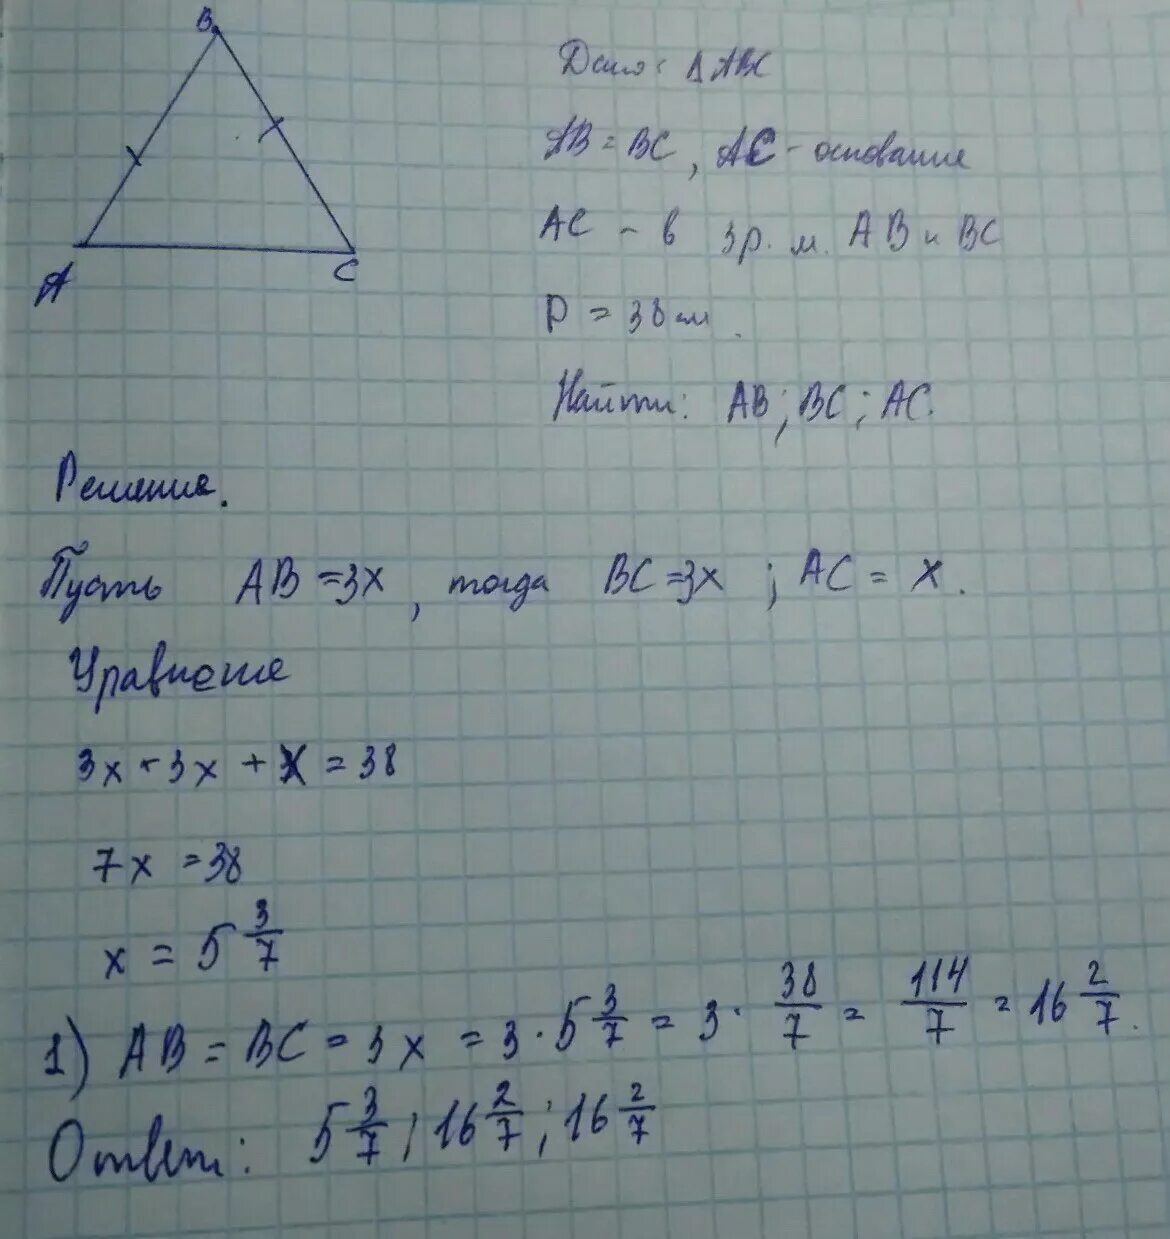 B
A
C
Дано: Δ ABC
AB = BC, AC - основание
AC - в 3 р. м. AB и BC
P = 38 см.
Найти: AB; BC; AC.
Решение.
Пусть AB = 3x, тогда BC = 3x; AC = x.
Уравнение
3x + 3x + x = 38
7x = 38
x = 5 3/7
1) AB = BC = 3x = 3 · 5 3/7 = 3 · 38/7 = 114/7 = 16 2/7.
Ответ: 5 3/7; 16 2/7; 16 2/7